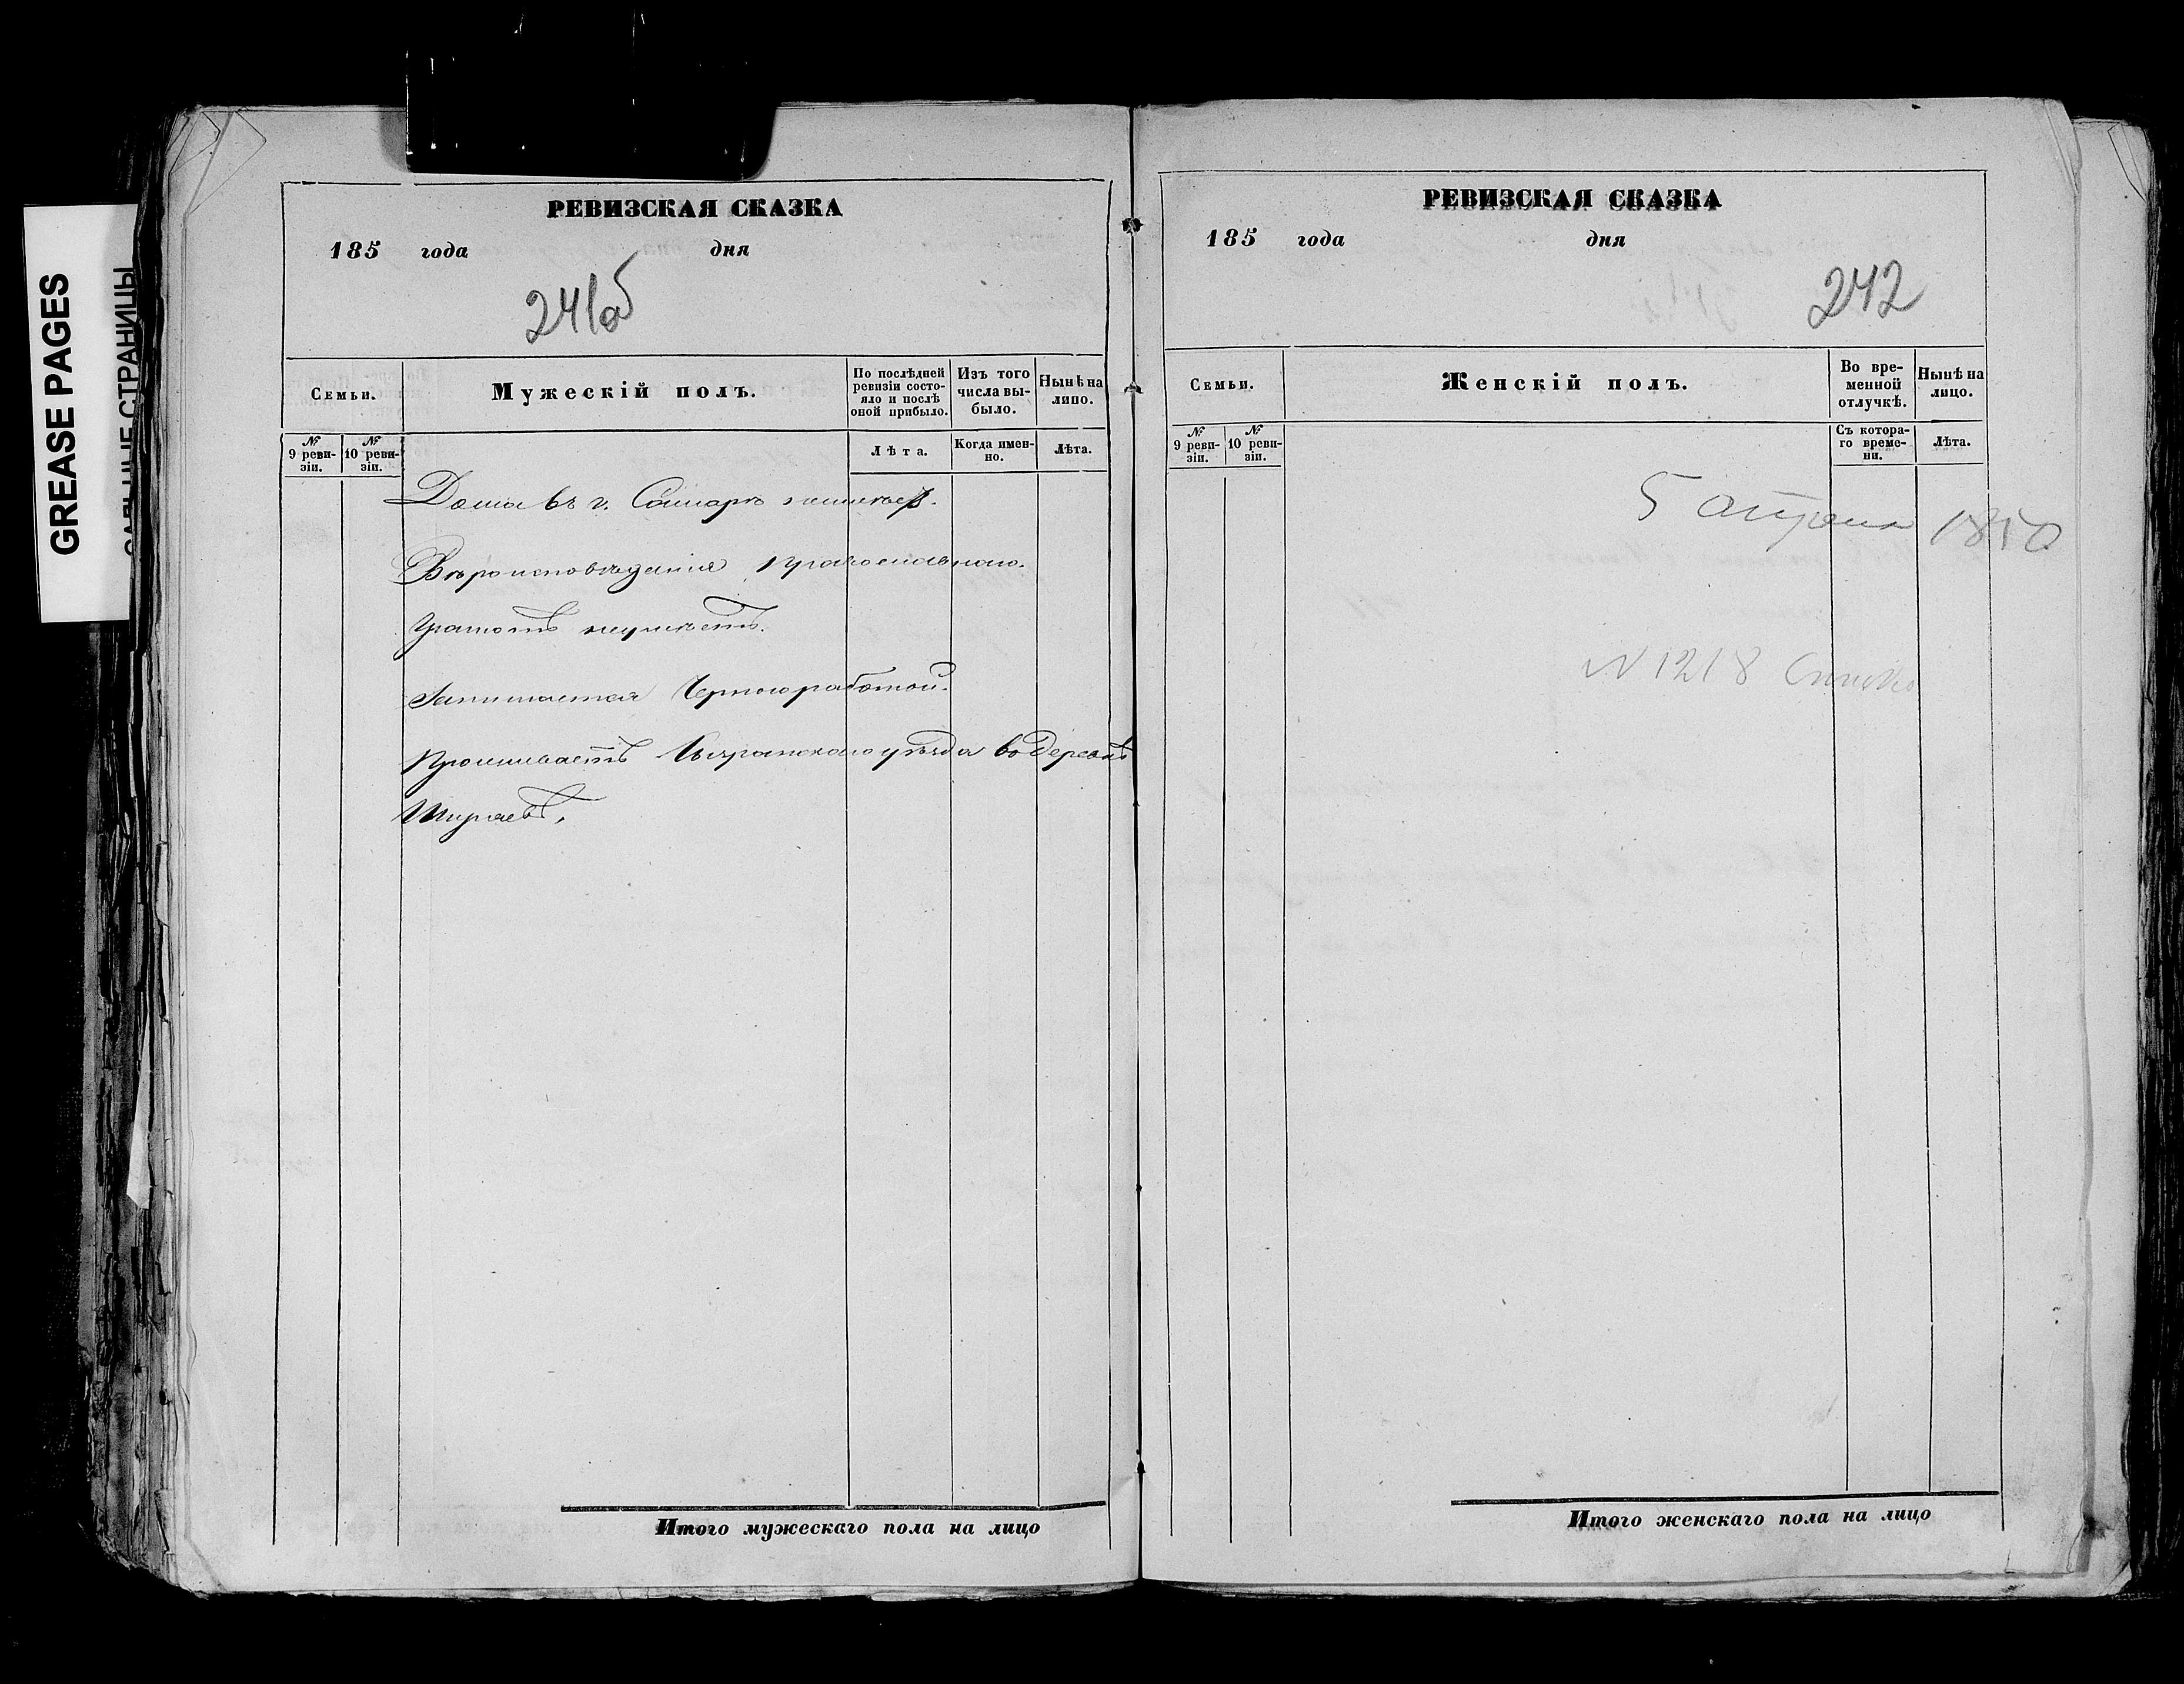 GREASE PAGES
САЛЬНЫЕ СТРАНИЦЫ
РЕВИЗСКАЯ СКАЗКА
185 года дня
241об
Семьи.
Мужескій полъ.
По послѣдней ревизіи состояло и послѣ оной прибыло.
Изъ того числа выбыло.
Нынѣ на лицо.
№ 9 ревизіи.
№ 10 ревизіи.
Лѣта.
Когда именно.
Лѣта.
Дома въ г. Самарѣ неимѣет.
Вѣроисповѣданія Православнаго.
Грамотѣ неумѣетъ.
Занимается Черною работой.
Проживаетъ Сызранскаго уѣзда въ деревнѣ
Итого мужескаго пола на лицо
РЕВИЗСКАЯ СКАЗКА
185 года дня
242
Семьи.
Женскій полъ.
Во временной отлучкѣ.
Нынѣ на лицо.
№ 9 ревизіи.
№ 10 ревизіи.
Съ котораго времени.
Лѣта.
5 апреля 1850
N 1218
Итого женскаго пола на лицо